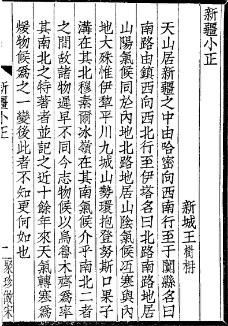 新疆小正
新城王樹枏
天山居新疆之中由哈密向西南行至于闐縣名曰
南路由鎮西向西北行至伊塔名曰北路南路地居
山陽氣候同於內地北路地居山陰氣候沍寒與內
地大殊惟伊犁平川九城山勢環抱登努斯口果子
溝在其北穆素爾冰嶺在其南氣候介乎南北二者
之間故諸物遲早不同今志物候以烏魯木齊爲率
其南北之特著者並記之近十餘年來天氣轉寒爲
煖物候爲之一變後此者不知更何如也
新疆小正
一
聚珍倣宋